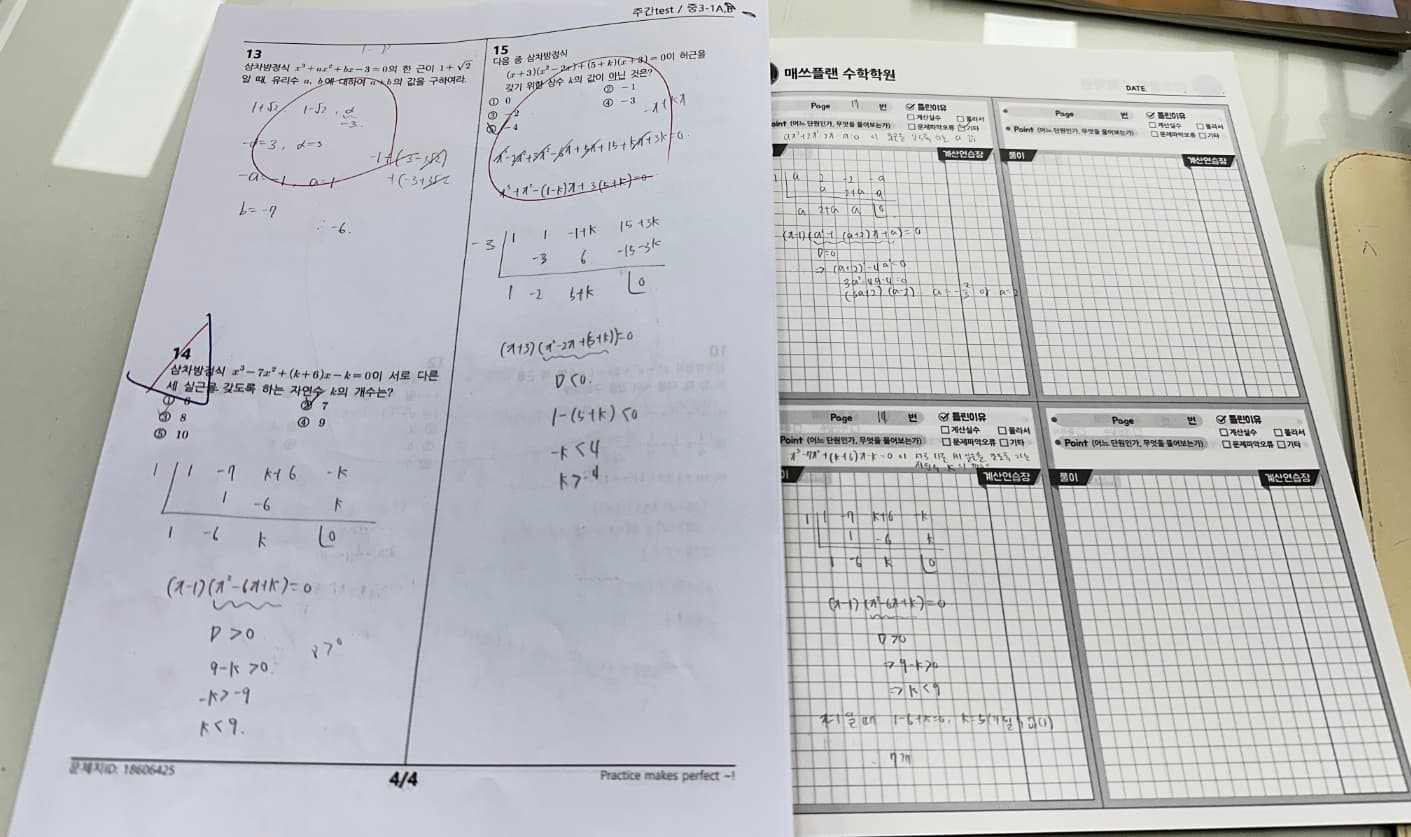 주간test / 중3-1A,B
13
삼차방정식 x³+ax²+bx−3=0의 한 근이 1+√2
일 때, 유리수 a, b에 대하여 a+b의 값을 구하여라.
1+√2 1−√2, α
−3.
−α=3, α=3
−a=−1, a=1
−1+(−3−3√2)
+(−3+3√2
b=−7
∴ −6.
14
삼차방정식 x³−7x²+(k+6)x−k=0이 서로 다른
세 실근을 갖도록 하는 자연수 k의 개수는?
① 6 ② 7
③ 8 ④ 9
⑤ 10
1 1 −7 k+6 −k
1 −6 k
1 −6 k 0
(x−1)(x²−6x+k)=0
D>0
9−k>0
−k>−9
k<9.
15
다음 중 삼차방정식
(x+3)(x²−2x)+(5+k)(x+3)=0이 허근을
갖기 위한 상수 k의 값이 아닌 것은?
① 0 ② −1
③ −2 ④ −3
⑤ −4
−x+kx
x³−2x²+3x²−6x+5x+15+kx+3k=0.
x³+x²−(1−k)x+3(5+k)=0
−3 1 1 −1+k 15+3k
−3 6 −15−3k
1 −2 5+k 0
(x+3)(x²−2x+(5+k))=0
D<0.
1−(5+k)<0
−k<4
k>−4
문제지ID: 18606425
4/4
Practice makes perfect ~!
매쓰플랜 수학학원
DATE.
Page 17 번 틀린이유
계산실수 몰라서
oint (어느 단원인가, 무엇을 물어보는가) 문제파악오류 기타
계산연습장
1 a 2 −2 −a
a 2+a a
a 2+a a 0
(x−1)(ax²+(a+2)x+a)=0
D=0
⇒ (a+2)²−4a²=0
3a²−4a−4=0
(3a+2)(a−2) a=−2/3 or a=2
Page 번 틀린이유
계산실수 몰라서
Point (어느 단원인가, 무엇을 물어보는가) 문제파악오류 기타
풀이 계산연습장
Page 14 번 틀린이유
계산실수 몰라서
Point (어느 단원인가, 무엇을 물어보는가) 문제파악오류 기타
x³−7x²+(k+6)x−k=0 이 서로 다른 세 실근을 갖도록 하는
자연수 k의
이 계산연습장
1 1 −7 k+6 −k
1 −6 k
1 −6 k 0
(x−1)(x²−6x+k)=0
D>0
⇒9−k>0
⇒k<9
x=1일 때 1−6+k=0, k=5
7개
Page 번 틀린이유
계산실수 몰라서
Point (어느 단원인가, 무엇을 물어보는가) 문제파악오류 기타
풀이 계산연습장